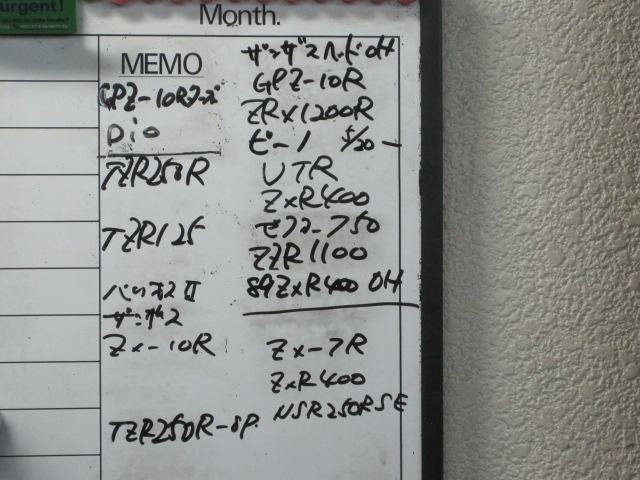 urgent!
Month.
MEMO
GPZ-10R
Dio
TZR250R
TZR125
バリオスII
ザンザス
ZX-10R
TZR250R-SP
ザンザスヘッドOH
GPZ-10R
ZRX1200R
ビーノ 5/20-
VTR
ZXR400
ゼファー750
ZZR1100
89ZXR400 OH
ZX-7R
ZXR400
NSR250RSE